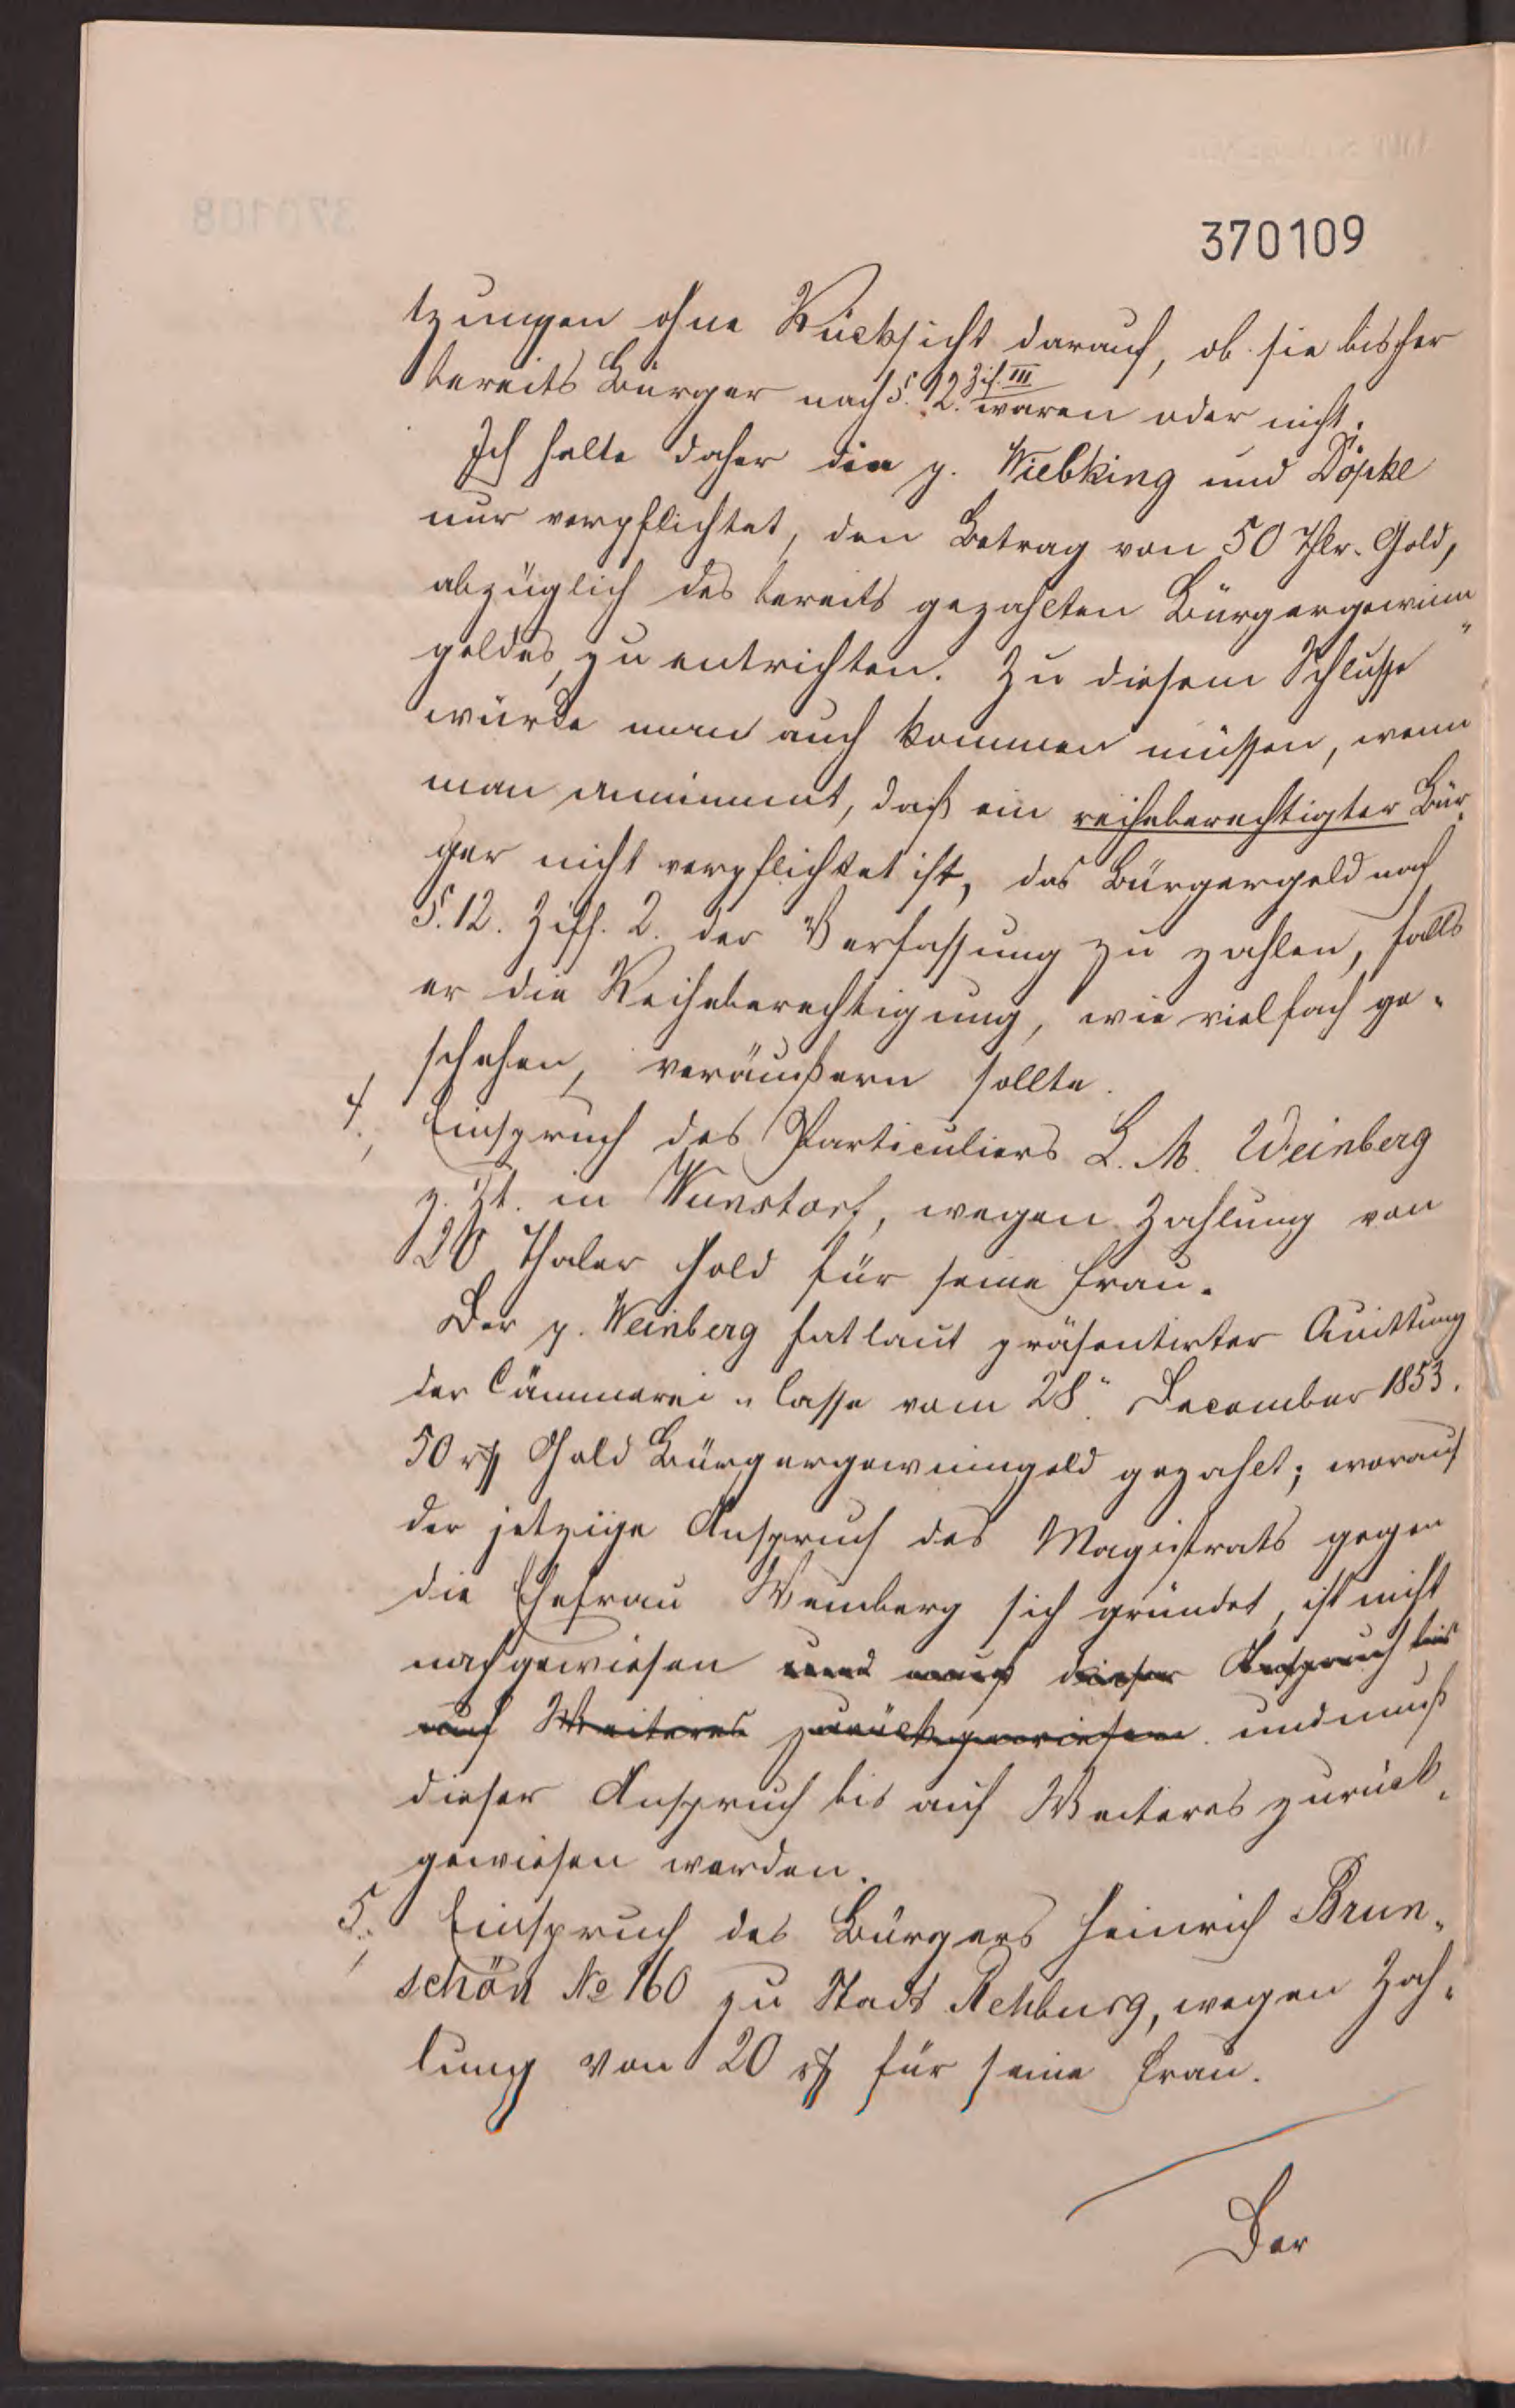 370109
tzungen ohne Rücksicht darauf, ob sie bisher
bereits Bürger nach §. 12. Zif. III waren oder nicht.
Ich halte daher die p. Wiebking und Döpke
nur verpflichtet, den Betrag von 50 Thlr. Gold,
abzüglich des bereits gezahlten Bürgergewinn„
geldes, zu entrichten. Zu diesem Schlusse
würde man auch kommen müssen, wenn
man annimmt, daß ein reiheberechtigter Bür„
ger nicht verpflichtet ist, das Bürgergeld nach
§. 12. Ziff. 2. der Verfassung zu zahlen, falls
er die Reiheberechtigung, wie vielfach ge„
schehen, veräußern sollte.
4., Einspruch des Particuliers L. M. Weinberg
z. Zt. in Wunstorf, wegen Zahlung von
20 Thaler Gold für seine Frau.
Der p. Weinberg hat laut präsentirter Quittung
der Cämmerei„Casse vom 28. December 1853.
50 rℳ Gold Bürgergewinngeld gezahlt; worauf
der jetzige Anspruch des Magistrats gegen
die Ehefrau Weinberg sich gründet, ist nicht
nachgewiesen und muß dieser Anspruch bis
auf Weiteres zurückgewiesen und muß
dieser Anspruch bis auf Weiteres zurück„
gewiesen werden.
5., Einspruch des Bürgers Heinrich Brun„
schön No 160 zu Stadt Rehburg, wegen Zah„
lung von 20 rℳ für seine Frau.
Der